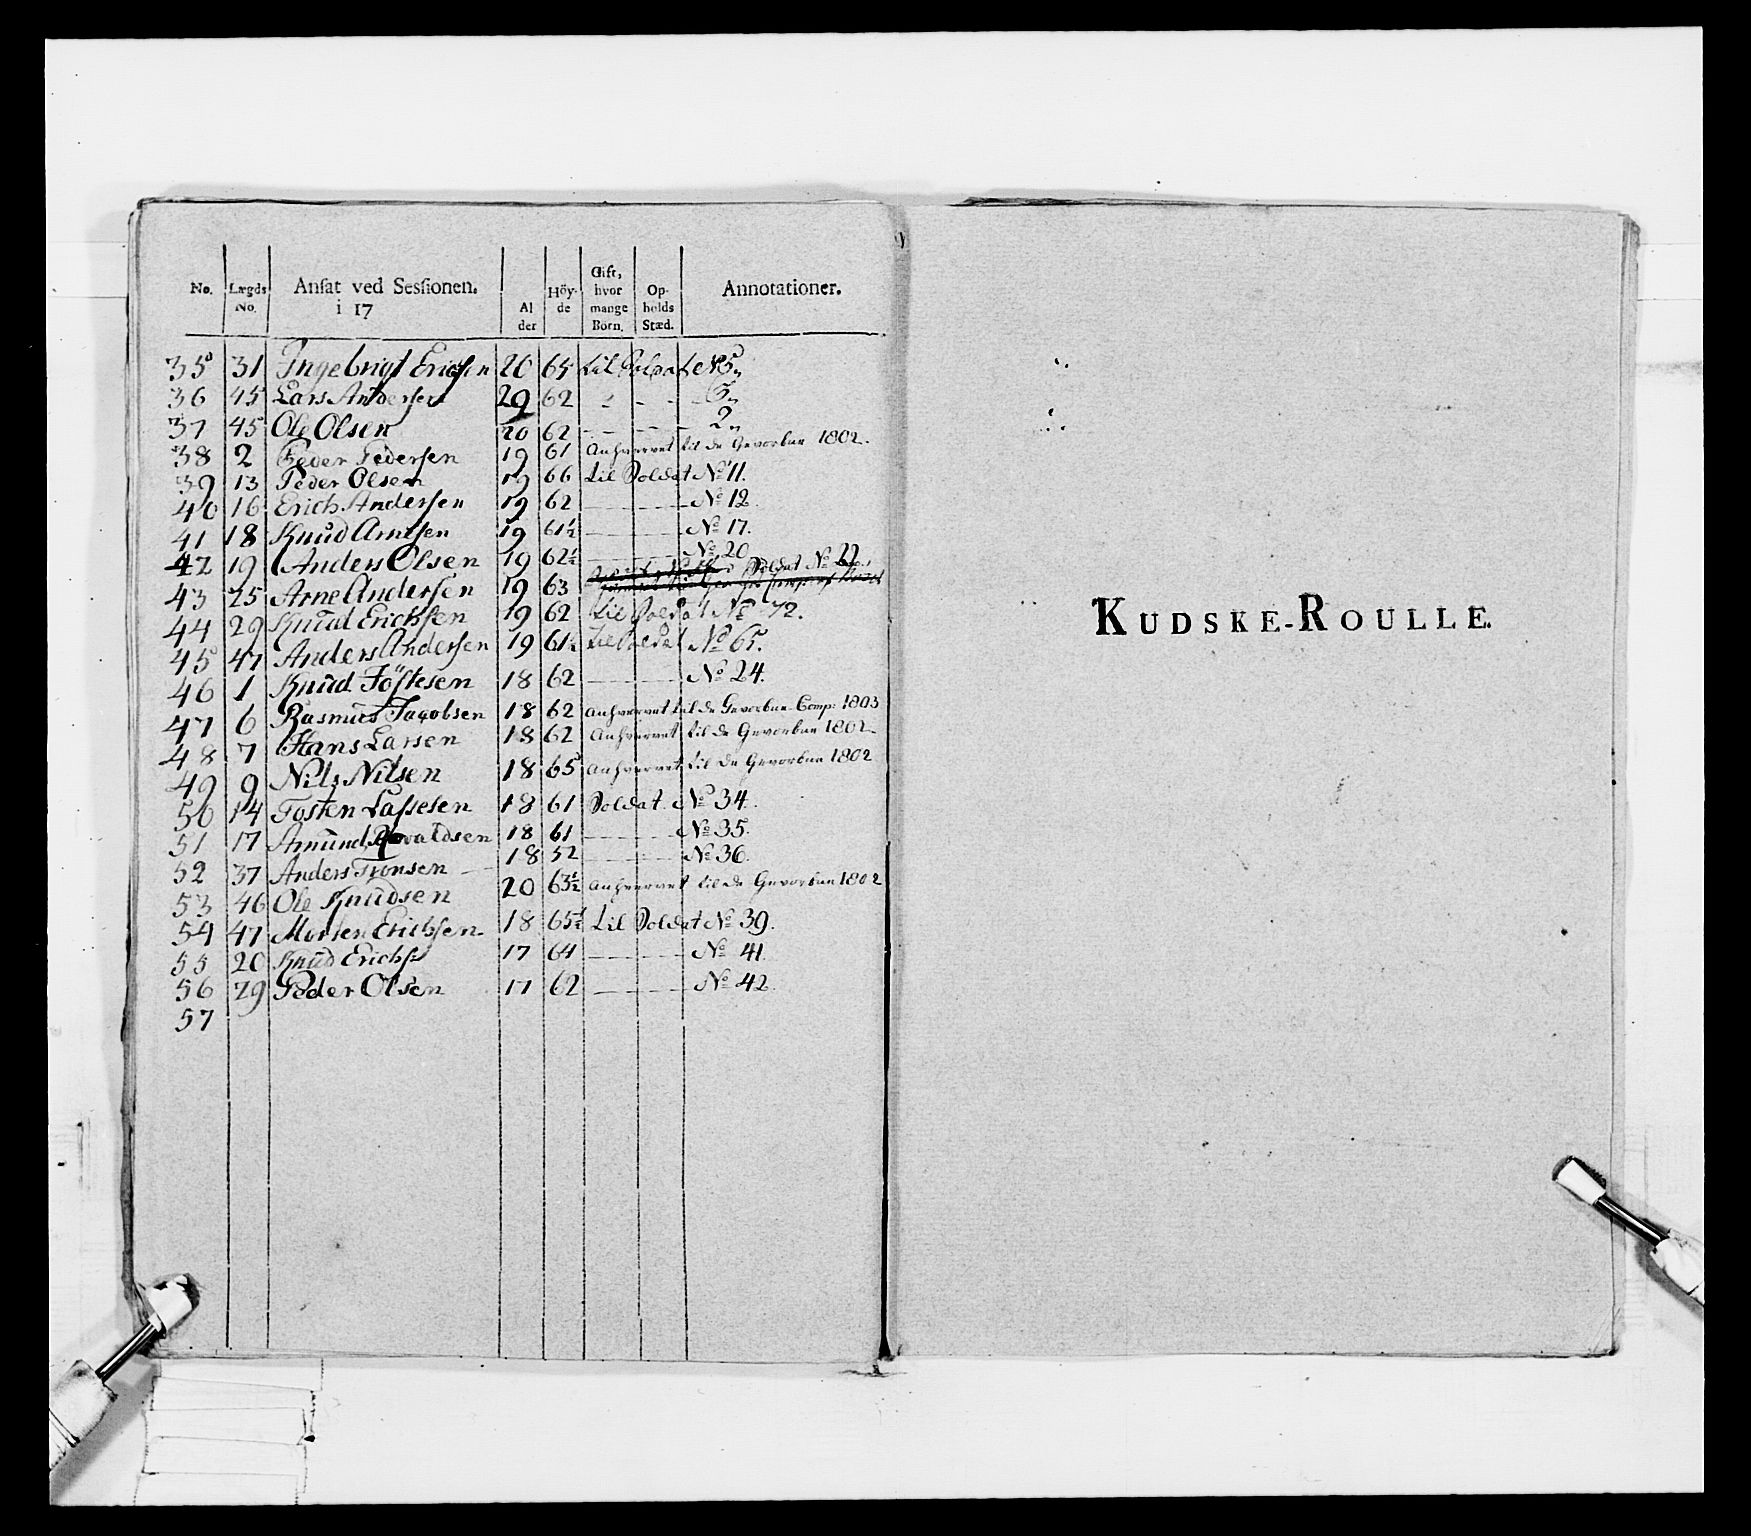 No. Lægds No. Ansat ved Sessionen. i 17 Al der Höy- de Gift, hvor mange Börn. Op- holds Stæd. Annotationer.
35 31 Ingebrigt Erichsen 20 65 til Soldat No 5„
36 45 Lars Andersen 29 62 - - - 3„
37 45 Ole Olsen 20 62 - - - 2„
38 2 Peder Pedersen 19 61 anhvervet til de Gevorbne 1802.
39 13 Peder Olsen 19 66 til Soldat No 11.
40 16 Erich Andersen 19 62 - - - No 12.
41 18 Knud Arntsen 19 61½ - - - No 17.
42 19 Anders Olsen 19 62¼ - - - No 20
43 25 Arne Andersen 19 63 Soldat No 22.
44 29 Knud Erichsen 19 62 til Soldat No 72.
45 47 Anders Andersen 19 61½ til Soldat No 65.
46 1 Knud Föstesen 18 62 - - - No 24.
47 6 Rasmus Jacobsen 18 62 anhvervet til de Gevorbne Comp: 1803
48 7 Hans Larsen 18 62 anhvervet til de Gevorbne 1802
49 9 Nils Nilsen 18 65 anhvervet til de Gevorbne 1802
50 14 Tosten Lassesen 18 61 Soldat No 34.
51 17 Amund 18 61 - - - No 35.
52 37 Anders Tronsen 18 52 - - - No 36.
53 46 Ole Knudsen 20 63½ anhvervet til de Gevorbne 1802
54 47 Morten Erichsen 18 65½ til Soldat No 39.
55 20 Knud Erichs 17 64 - - - No 41
56 29 Peder Olsen 17 62 - - - No 42.
57
KUDSKE-ROULLE.